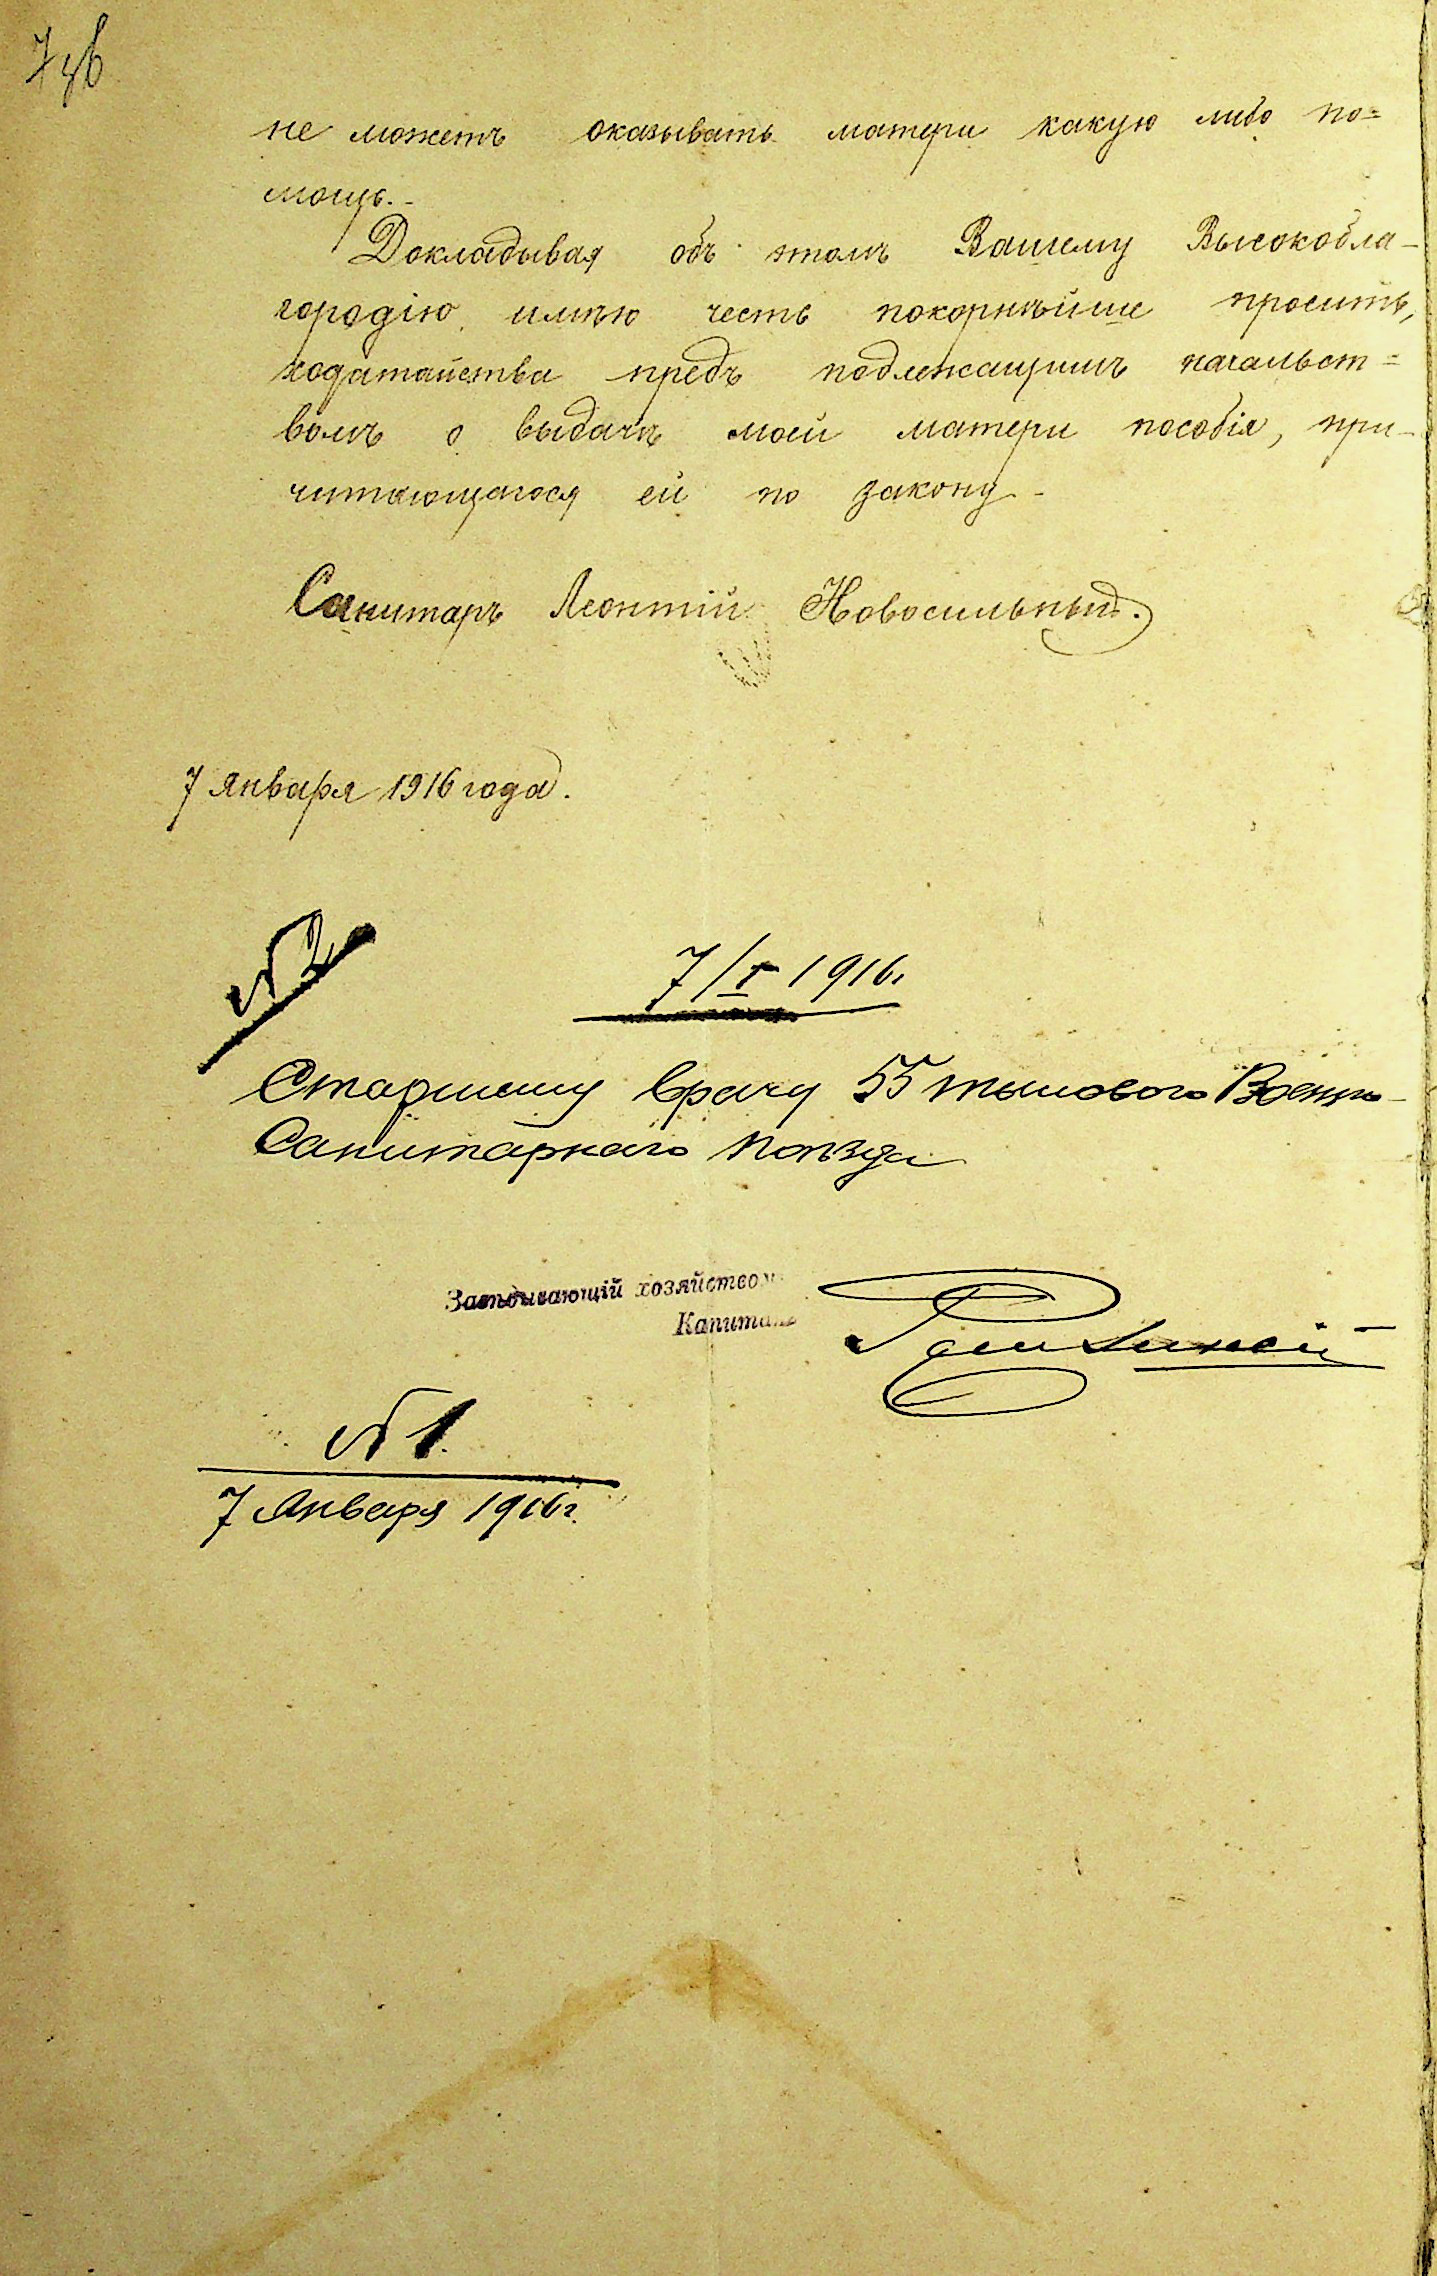 не можетъ оказывать матери какую либо по=
мощь.-
Докладывая объ этомъ Вашему Высокобла-
городію имѣю честь покорнѣйше просить,
ходатайства предъ подлежащимъ начальст=
вомъ о выдачѣ моей матери пособія, при-
читающагося ей по закону.-
Санитаръ Леонтій Новосильный.
7 января 1916 года.
№ 2
7/I 1916г.
Старшему врачу 55 тылового Военно-
Санитарнаго поѣзда
Завѣдывающій хозяйствомъ
Капитанъ
№ 1.
7 Января 1916 г.